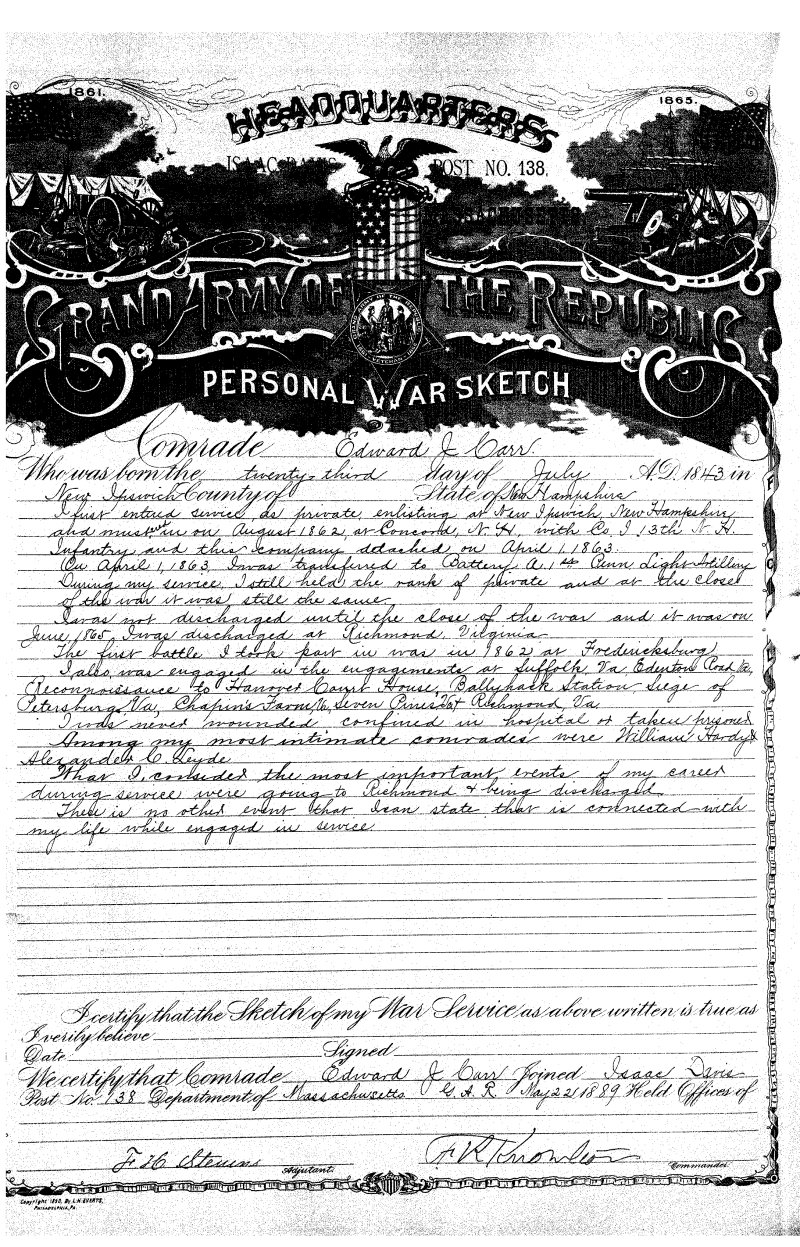 1861.
1865.
HEADQUARTERS
ISAAC DAVIS POST NO. 138,
MASSACHUSETTS
GRAND ARMY OF THE REPUBLIC
PERSONAL WAR SKETCH
Comrade Edward J Carr.
Who was born the twenty-third day of July A.D. 1843 in
New Ipswich County of State of New Hampshire
I first entred service as private, enlisting at New Ipswich, New Hampshire
and musterd in on August 1862, at Concord, N.H., with Co. I, 13th N.H.
Infantry and this company detached on April 1, 1863.
On April 1, 1863, I was transferred to Battery A. 1st Penn Light Artillery
During my service, I still held the rank of private and at the close
of the war it was still the same.
I was not discharged until the close of the war and it was on
June, 1865, I was discharged at Richmond, Virginia
The first battle I took part in was in 1862 at Fredericksburg
I also was engaged in the engagements at Suffolk, Va, Edenton Road, Va,
Reconnoissance to Hanover Court House, Ballyhack Station, Siege of
Petersburg, Va, Chapins Farm, Va, Seven Pines, Va & Richmond, Va.
I was never wounded confined in hospital or taken prisoner
Among my most intimate comrades were William Hardy &
Alexander C.
What I consider the most important events of my career
during service were going to Richmond & being discharged.
There is no other event that I can state that is connected with
my life while engaged in service
I certify that the Sketch of my War Service as above written is true as
I verily believe
Date Signed
We certify that Comrade Edward J Carr Joined Isaac Davis
Post No. 138 Department of Massachusetts G.A.R. May 22 1889 Held Offices of
F H Stevens Adjutant. F K Knowlton Commander.
Copyright 1890, By L.H. EVERTS,
PHILADELPHIA, PA.